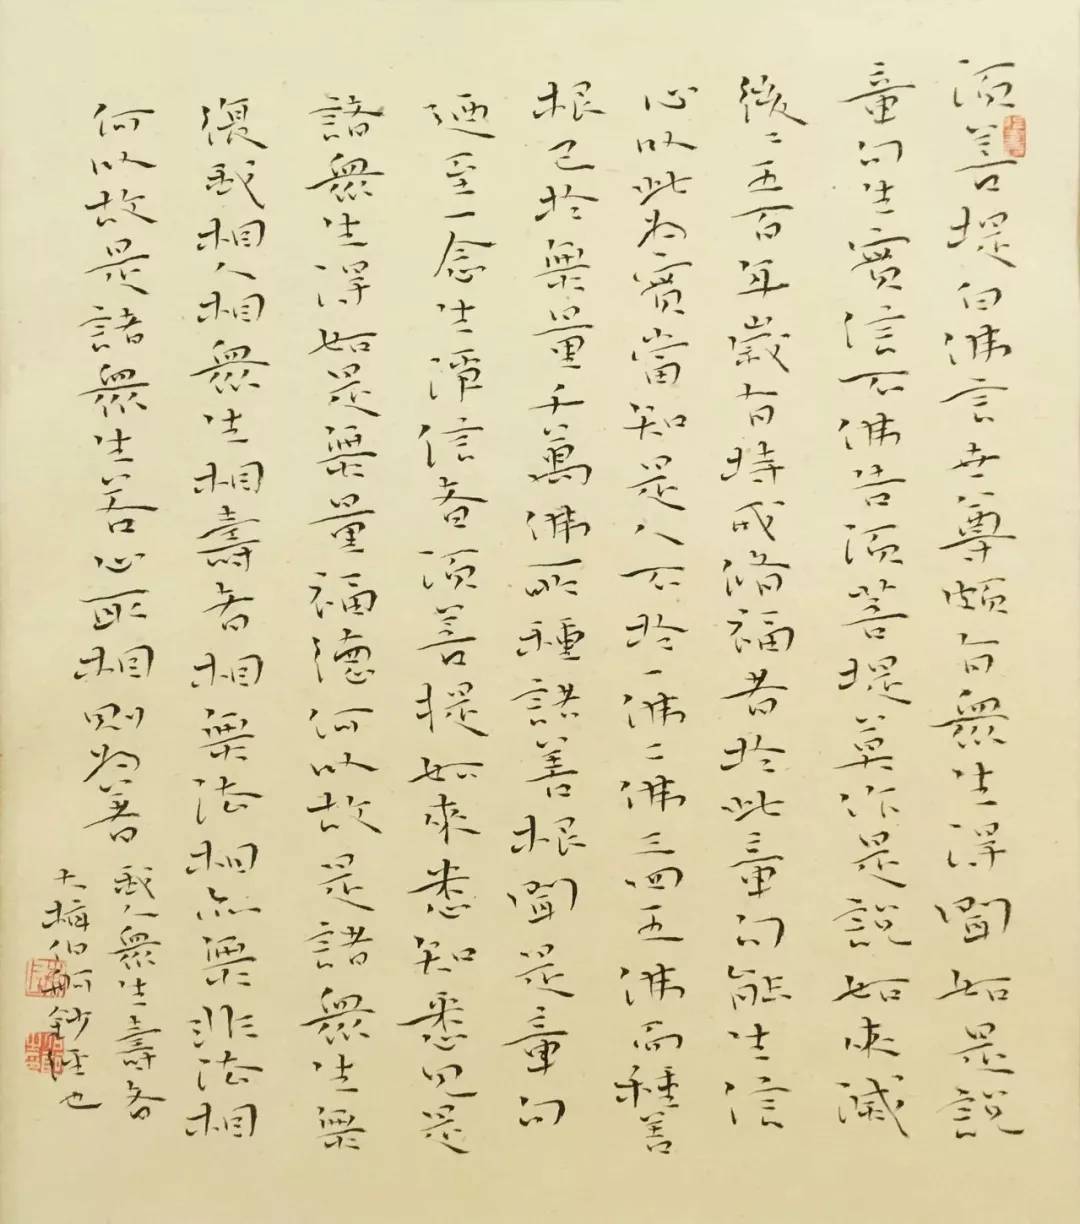 須菩提白佛言世尊頗有眾生得聞如是說
章句生實信不佛告須菩提莫作是說如來滅
後〻五百年歲有持戒脩福者於此章句能生信
心以此為實當知是人不於一佛二佛三四五佛而種善
根已於無量千萬佛所種諸善根聞是章句
迺至一念生淨信者須菩提如來悉知悉見是
諸眾生得如是無量福德何以故是諸眾生無
復我相人相眾生相壽者相無法相亦無非法相
何以故是諸眾生若心取相則為著
我人眾生壽者
梅伯舸鈔經也